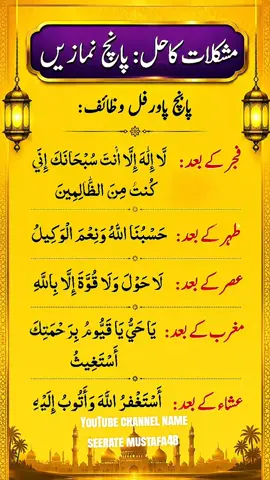 مشکلات کا حل: پانچ نمازیں
پانچ پاور فل وظائف:
فجر کے بعد: لَا إِلٰهَ إِلَّا أَنْتَ سُبْحَانَكَ إِنِّي
كُنتُ مِنَ الظَّالِمِينَ
ظہر کے بعد: حَسْبُنَا اللهُ وَنِعْمَ الْوَكِيلُ
عصر کے بعد: لَا حَوْلَ وَلَا قُوَّةَ إِلَّا بِاللهِ
مغرب کے بعد: يَا حَيُّ يَا قَيُّومُ بِرَحْمَتِكَ
أَسْتَغِيثُ
عشاء کے بعد: أَسْتَغْفِرُ اللهَ وَأَتُوبُ إِلَيْهِ
YouTube channel name
SEERATE MUSTAFA48